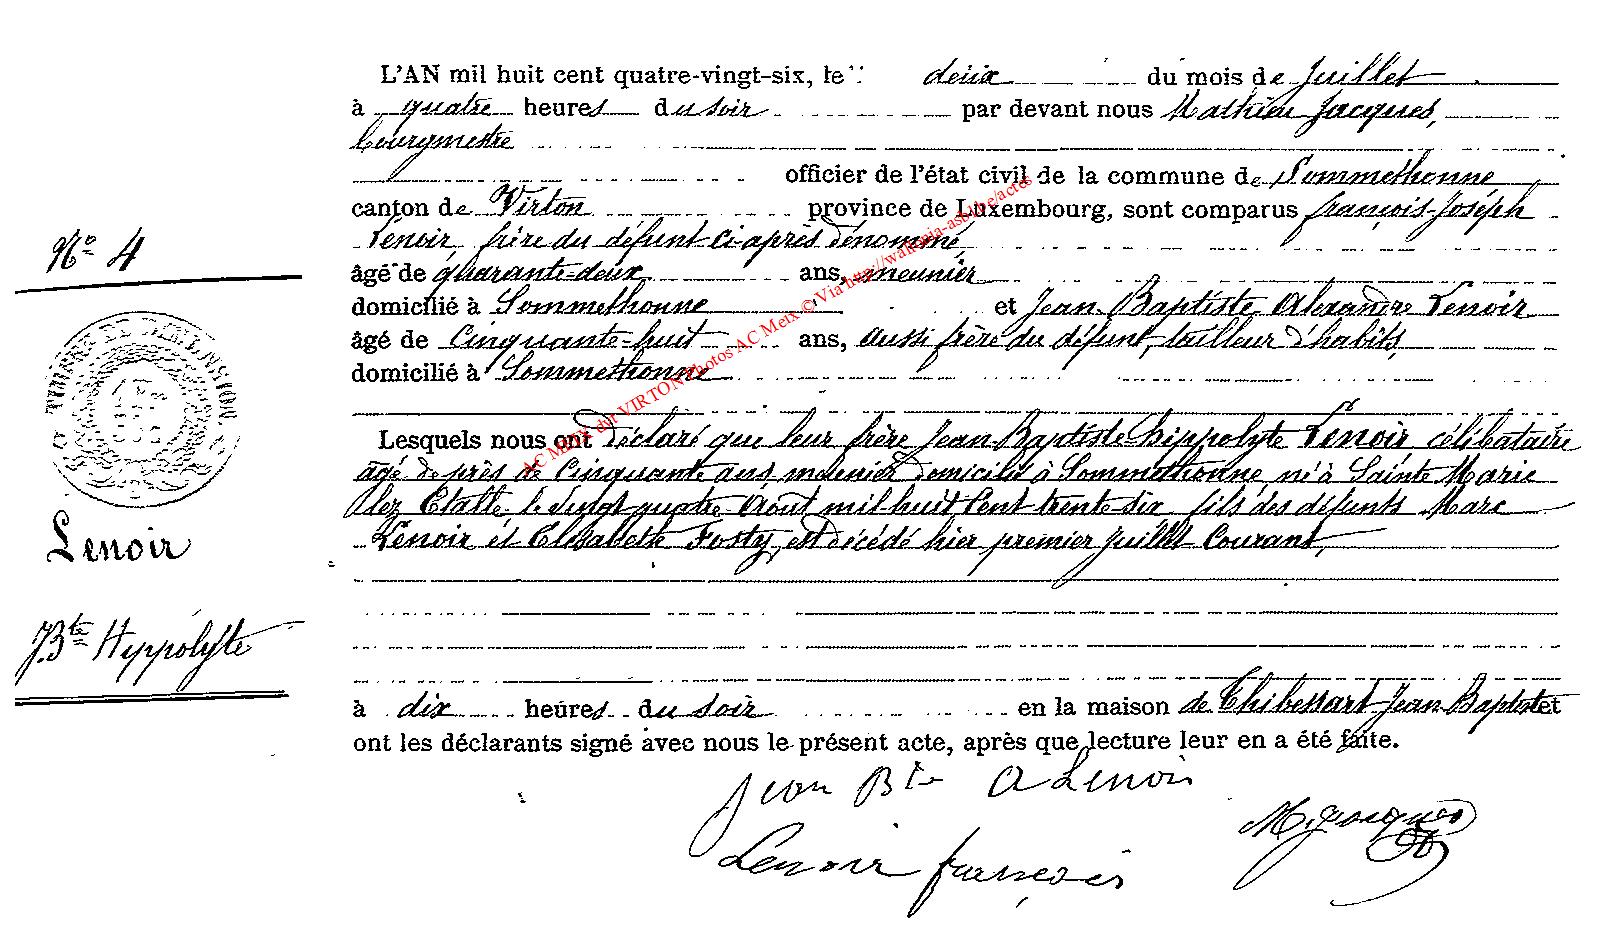 L'AN mil huit cent quatre-vingt-six, le deux du mois de Juillet
à quatre heures du soir par devant nous Mathieu Jacques,
bourgmestre
officier de l'état civil de la commune de Sommethonne
canton de Virton province de Luxembourg, sont comparus françois-Joséph
Lenoir, frère du défunt ci-après dénommé,
N° 4
âgé de quarante-deux ans, meunier
domicilié à Sommethonne et Jean Baptiste Alexandre Lenoir
âgé de Cinquante-huit ans, aussi frère du défunt, tailleur d'habits,
domicilié à Sommethonne
AC MEIX dvt VIRTON Photos AC Meix © Via http://wallonia-asbl.be/actes
Lesquels nous ont déclaré que leur frère Jean Baptiste hippolyte Lenoir célibataire
âgé de près de Cinquante ans, meunier domicilié à Sommethonne, né à Sainte Marie
lez Etalle le vingt quatre Août mil huit Cent trente-six fils des défunts Marc
Lenoir et Elisabeth Fosty, est décédé hier premier Juillet Courant,
Lenoir
J.Bte Hyppolyte
à dix heures du soir en la maison de Thibessart Jean Baptiste et
ont les déclarants signé avec nous le présent acte, après que lecture leur en a été faite.
Jean Bte A Lenoir
M. Jacques
Lenoir françois